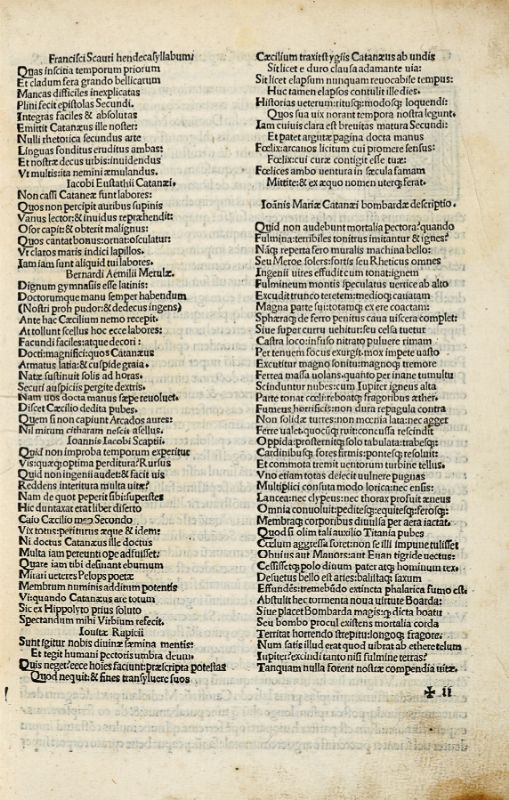 Francisci Scauti hendecasyllabumi
Quas inscitia temporum priorum
Et cladum fera grando bellicarum
Mancas difficiles inexplicatas
Plini fecit epistolas Secundi.
Integras faciles & absolutas
Emittit Catanæus ille noster:
Nulli rhetorica secundus arte
Linguas fonditus eruditus ambas:
Et nostræ decus urbis: inuidendus
Vt multis: ita nemini æmulandus.
Iacobi Eustathii Catanæi.
Non cassi Catanee sunt labores:
Quos non percipit auribus supinis
Vanus lector: & inuidus repræhendit:
Osor capit: & obterit malignus:
Quos cantat bonus: ornat: osculatur:
Vt claros maris indici lapillos.
Iam iam sunt aliquid tui labores.
Bernardi Aemilii Merulæ.
Dignum gymnasiis esse latinis:
Doctorumque manu semper habendum
(Nostri proh pudor: & dedecus ingens)
Ante hac Cæcilium nemo recepit.
Attollunt scellus hoc ecce labores:
Facundi faciles: atque decori:
Docti: magnifici: quos Catanæus
Armatus latia: & cuspide graia.
Natæ sustinuit solis ad horas.
Securi auspiciis pergite dextris.
Nam uos docta manus sæpe reuoluet.
Discet Cæcilio dedita pubes.
Quem si non capiunt Arcados aures:
Nil mirum citharam nescit asellus.
Ioannis Iacobi Scaptii.
Quid non improba temporum experitur
Vis: quæq; optima perditura? Rursus
Quid non ingenii audet: & facit uis
Reddens interitura multa uitæ?
Nam de quot peperit sibi: superstes
Hic duntaxat erat liber diserto
Caio Cæcilio Secondo
Vix totus: periturus æque & idem:
Ni doctus Catanæus ille doctus
Multa iam pereunti ope adfuisset:
Quare iam tibi desinant eburnum
Mirari ueteres Pelops poetæ
Membrum numinis additum potentis
Viquando Catanæus arte totum
Sic ex Hippolyto prius soluto
Spectandum mihi Virbium refecit.
Iouitæ Rapicii
Sunt igitur nobis diuinæ fæmina mentis:
Et tegit humani pectoris umbra deum:
Quis neget? ecce hoies faciunt: præscripta potestas
Quod nequit: & fines transyluere suos
Cæcilium traxit stygiis Catanæus ab undis
Sit licet e duro clausa adamante uia:
Sit licet elapsum nunquam reuocabile tempus:
Huc tamen elapsos contulit ille dies.
Historias ueterum: ritusq; modosq; loquendi:
Quos sua uix norant tempora nostra legunt.
Iam cuiuis clara est breuitas matura Secundi:
Et patet argutæ pagina docta manus
Fœlix: arcanos licitum cui promere sensus:
Fœlix: cui curæ contigit esse tuæ:
Fœlices ambo uentura in sæcula famam
Mittite: & ex æquo nomen uterq; ferat.
Ioānis Mariæ Catanæi bombardæ descriptio.
Quid non audebunt mortalia pectora? quando
Fulmina: terribiles tonitrus imitantur & ignes?
Nāq; repersa sero muralis machina bello:
Seu Meroe solers: fortis seu Rheticus omnes
Ingenii uires effudit cum tonat: ignem
Fulmineum montis speculatus uertice ab alto
Excudit trunco teretem: medioq; cauatam
Magna parte sui: totamq; ex ære coactam:
Sphæraq; de ferro penitus caua uiscera complet:
Siue super curru uehitur: seu celsa tuetur
Castra loco: infuso nitrato puluere rimam
Per tenuem focus exurgit: mox impete uasto
Excutitur magno sonitu: magnoq; tremore
Ferrea massa uolans: quanto per inane tumultu
Scinduntur nubes: cum Iupiter igneus alta
Parte tonat cœli: reboatq; fragoribus æther.
Fumeus horrificis: non dura repagula contra
Non solidæ turres: non mœnia lata: nec agger
Ferre ualet: quocūq; ruit: concussa rescindit
Oppida: prosternitq; solo tabulata: trabesq;:
Cardinibusq; fores firmis: pontesq; resoluit:
Et commota tremit uentorum turbine tellus.
Vno etiam totas deiecit uulnere pugnas
Multiplici consuta modo lorica: nec ensis:
Lancea: nec clypeus: nec thorax profuit æneus
Omnia conuoluit: peditesq;: equitesq;: ferosq;:
Membraq; corporibus diuulsa per aera iactat.
Quod si olim tali auxilio Titania pubes
Cœlum aggressa foret: non se illi impune tulisset
Obuius aut Mauors: aut Euan tigride uectus:
Cessisset q; polo diuum pater atq; hominum rex.
Desuetus bello est aries: balistaq; saxum
Effundēs: tremebūdo extincta phalarica fumo est.
Abstulit hec tormenta noua uirtute Boarda:
Siue placet Bombarda magis: q; dicta boatu
Seu bombo procul existens mortalia corda
Territat horrendo strepitu: longoq; fragore.
Num satis illud erat quod uibrat ab ethere telum
Iupiter: excindi tanto nisi fulmine terras?
Tanquam nulla forent nostræ compendia uitæ.
✠ ii